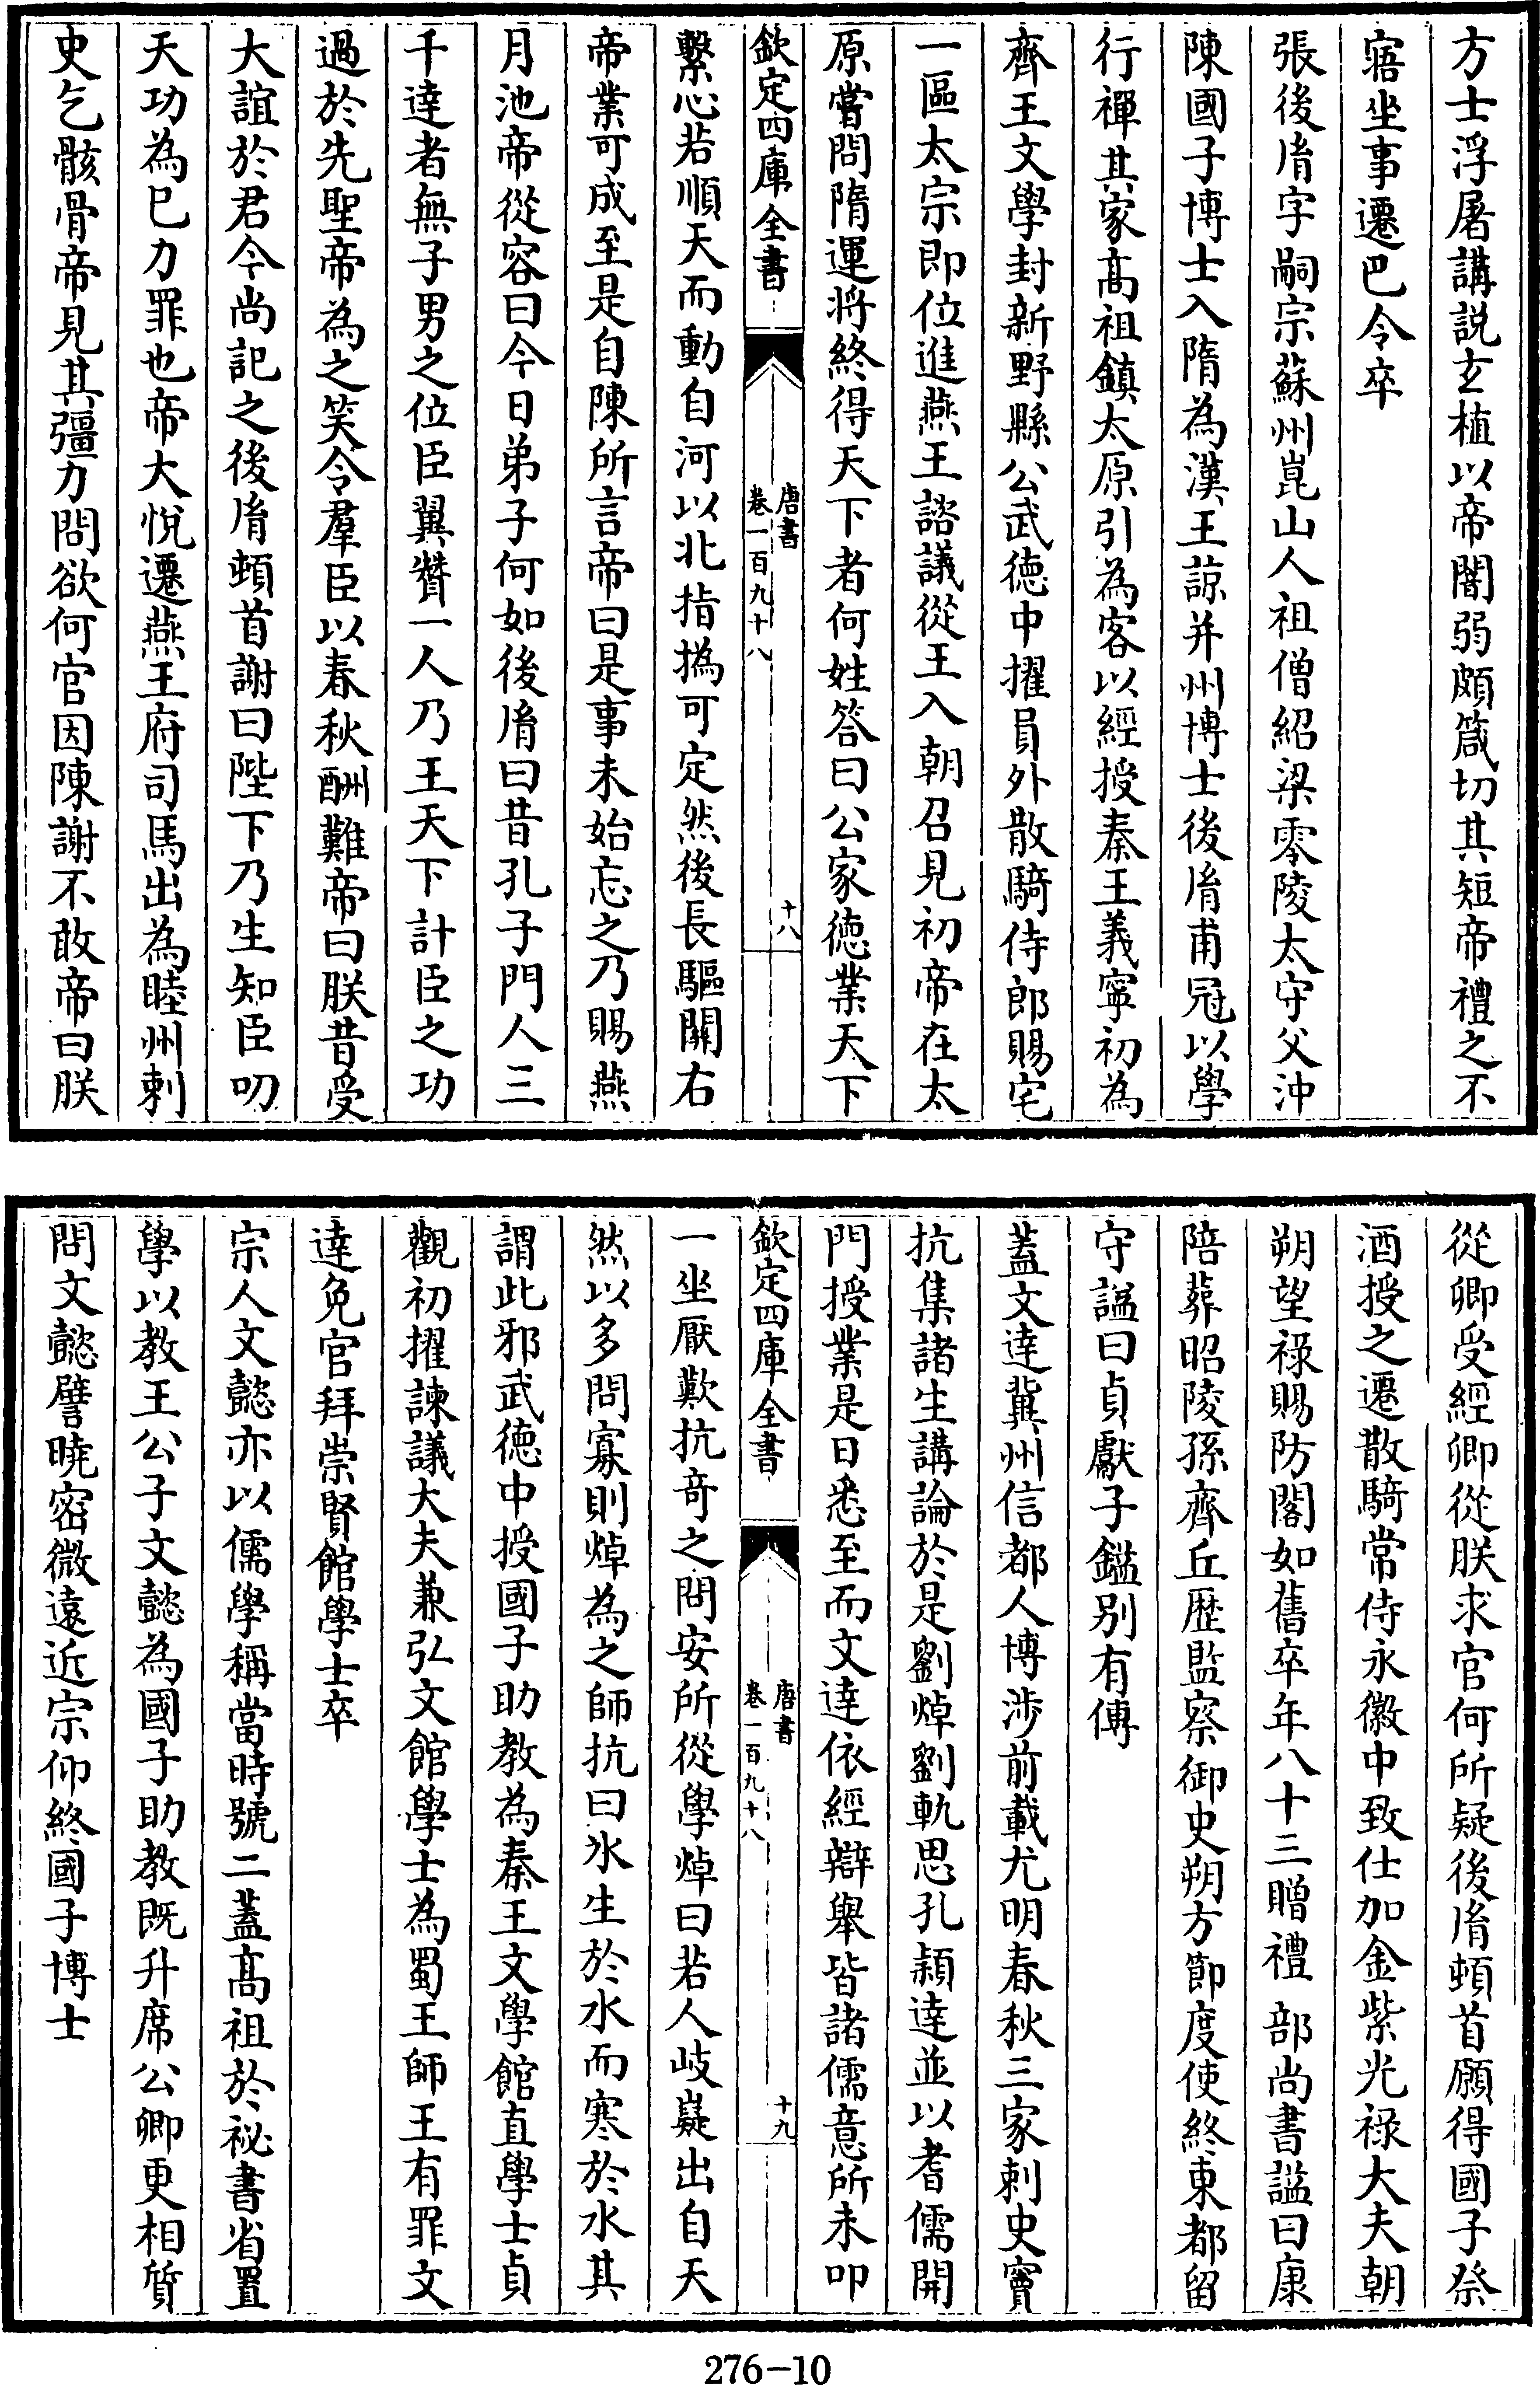 方士浮屠講説玄植以帝闇弱頗箴切其短帝禮之不
寤坐事遷巴令卒
張後胤字嗣宗蘇州崑山人祖僧紹梁零陵太守父沖
陳國子博士入隋為漢王諒并州博士後胤甫冠以學
行禪其家髙祖鎮太原引為客以經授秦王義寧初為
齊王文學封新野縣公武徳中擢員外散騎侍郎賜宅
一區太宗即位進燕王諮議從王入朝召見初帝在太
原嘗問隋運将終得天下者何姓答曰公家徳業天下
欽定四庫全書
唐書
卷一百九十八
十八
繫心若順天而動自河以北指撝可定然後長驅關右
帝業可成至是自陳所言帝曰是事未始忘之乃賜燕
月池帝從容曰今日弟子何如後胤曰昔孔子門人三
千達者無子男之位臣翼贊一人乃王天下計臣之功
過於先聖帝為之笑令羣臣以春秋酬難帝曰朕昔受
大誼於君今尚記之後胤頓首謝曰陛下乃生知臣叨
天功為已力罪也帝大悅遷燕王府司馬出為睦州刺
史乞骸骨帝見其彊力問欲何官因陳謝不敢帝曰朕
從卿受經卿從朕求官何所疑後胤頓首願得國子祭
酒授之遷散騎常侍永徽中致仕加金紫光禄大夫朝
朔望禄賜防閤如舊卒年八十三贈禮部尚書謚曰康
陪葬昭陵孫齊丘歴監察御史朔方節度使終東都留
守謚曰貞獻子鎰别有傳
蓋文達冀州信都人博渉前載尤明春秋三家刺史竇
抗集諸生講論於是劉焯劉軌思孔頴達並以耆儒開
門授業是日悉至而文達依經辯舉皆諸儒意所未叩
欽定四庫全書
唐書
卷一百九十八
十九
一坐厭歎抗竒之問安所從學焯曰若人岐嶷出自天
然以多問寡則焯為之師抗曰氷生於水而寒於水其
謂此邪武徳中授國子助教為秦王文學館直學士貞
觀初擢諫議大夫兼弘文館學士為蜀王師王有罪文
達免官拜崇賢館學士卒
宗人文懿亦以儒學稱當時號二蓋髙祖於祕書省置
學以教王公子文懿為國子助教既升席公卿更相質
問文懿譬曉密微遠近宗仰終國子博士
276-10